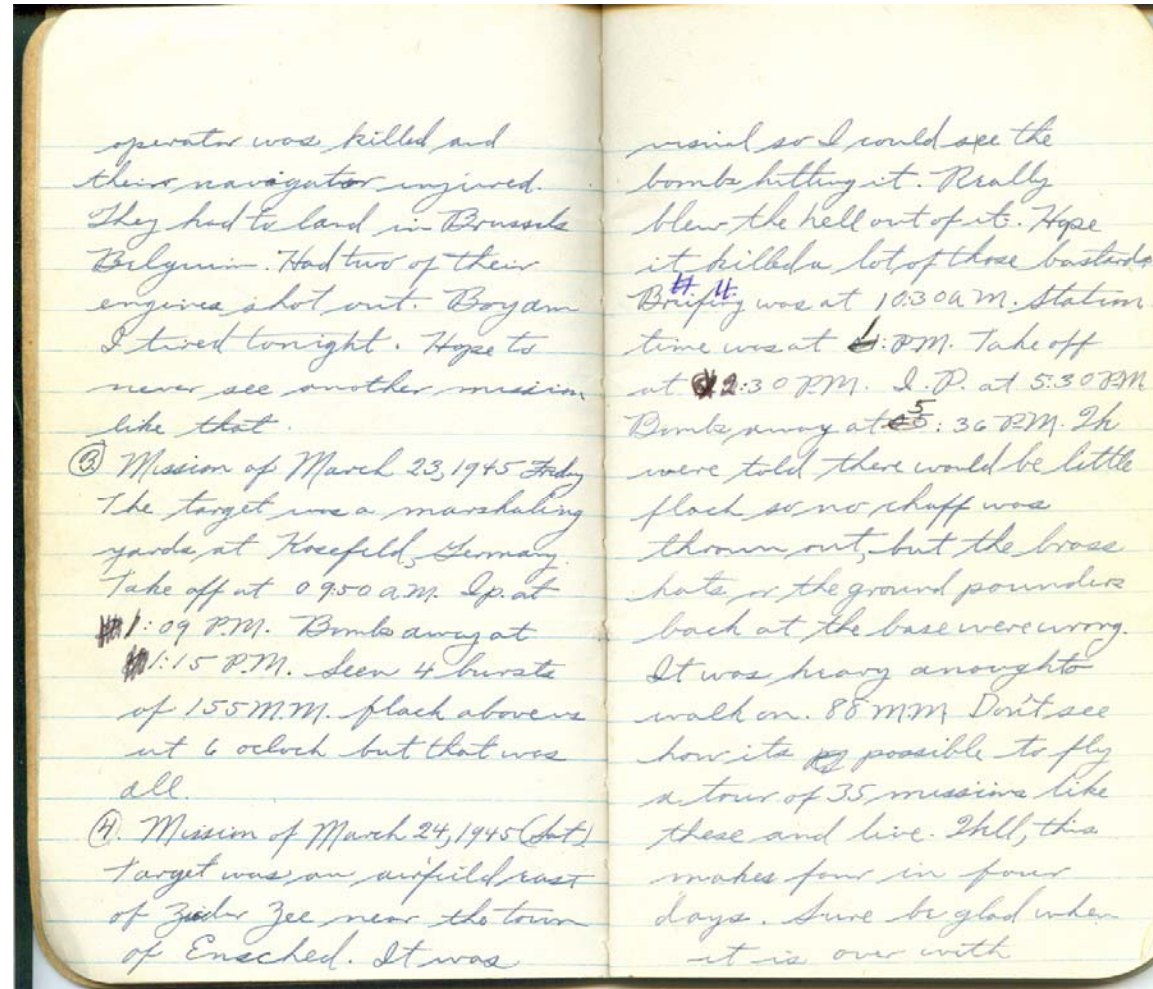 operator was killed and
their navigator injured.
They had to land in Brussels
Belguim. Had two of their
engines shot out. Boy am
I tired tonight. Hope to
never see another mission
like that.
③ Mission of March 23, 1945 Friday
The target was a marshaling
yards at Kosefeld, Germany.
Take off at 0950 A.M. I.p. at
1:09 P.M. Bombs away at
1:15 P.M. Seen 4 bursts
of 155 M.M. flack above us
at 6 acloch but that was
all.
④. Mission of March 24, 1945 (Sat)
Target was an airfield east
of Zuder Zee near the town
of Ensched. It was
visual so I could see the
bombs hitting it. Really
blew the hell out of it. Hope
it killed a lot of those bastards
Briefing was at 10:30 A.M. Station
time was at 1: P.M. Take off
at 2:30 P.M. I.P. at 5:30 P.M
Bombs away at 5: 36 P.M. We
were told there would be little
flack so no chaff was
thrown out, but the brass
hats or the ground pounders
back at the base were wrong.
It was heavy anough to
walk on. 88 MM Don't see
how its possible to fly
a tour of 35 missions like
these and live. Well, this
makes four in four
days. Sure be glad when
it is over with